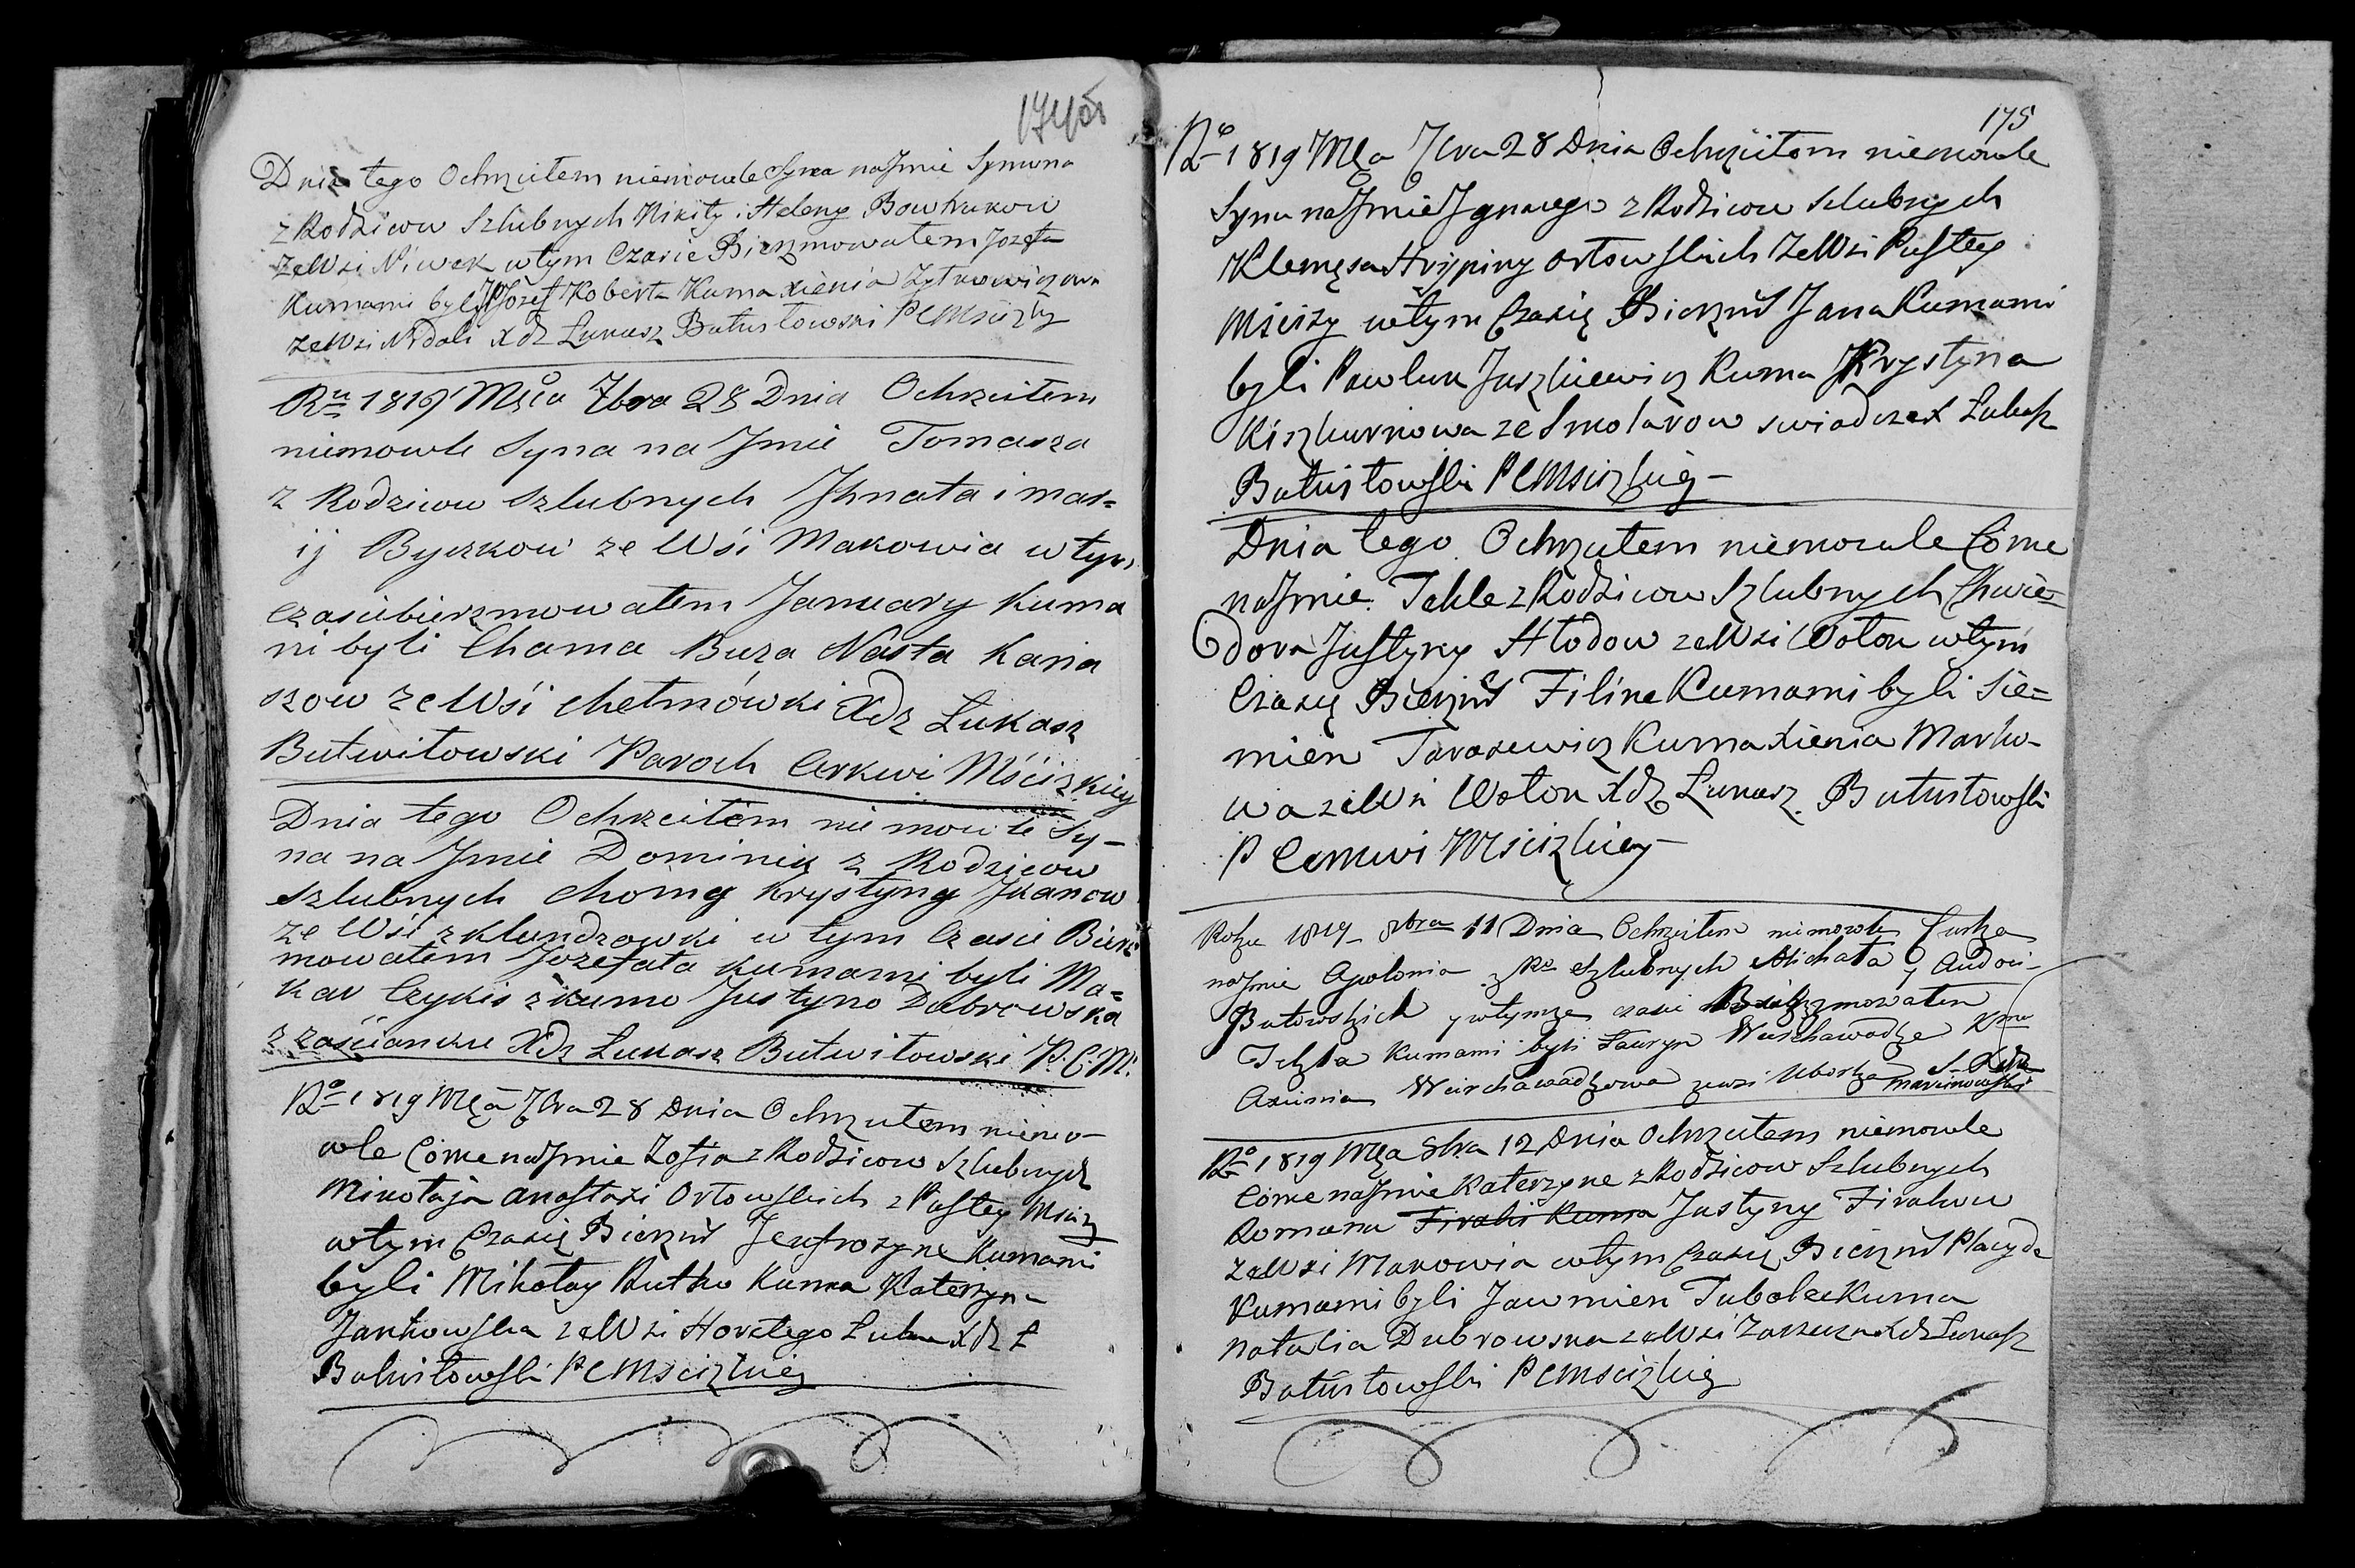 174 об
Dnia tego Ochrzcitem niemowle Syna na Jmie Symona
z Rodzicow Szlubnych Nikity i Heleny Bowtrukow
ze Wsi Niwek w tym Czasie Bierzmowatem Jozefa
Kumami byli Jozef Koberta Kuma Xienia
ze Wsi Nidali Xdz Łukasz Butwitowski PCMscizky
Ru 1819 Msca 7bra 28 Dnia Ochrzcitem
niemowle Syna na Jmie Tomasza
z Rodzicow Szlubnych Jhnata i mar=
ij Byczkow ze Wśi Makowia w tym
czasie bierzmowatem January kuma
mi byli Chama Buza Nasta Kania
szow ze Wśi chetmówki Xdz Łukasz
Butwitowski Paroch Cerkwi Mścizkiey
Dnia tego Ochrzcitem niemowle Sy-
na na Jmie Dominik z Rodzicow
szlubnych Chomy Krystyny Jkanow
ze Wśi zklundzowki w tym Czasie Bierz
mowatem Jozefata kumami byli Ma=
kar Czykis z kumo Justyno Dabrowska
z zaścianku Xdz Łukasz Butwitowski P.C.M.
Ro 1819 Msca 7bra 28 Dnia Ochrzcitem niemo-
wle Córke na Jmie Zofia z Rodzicow Szlubnych
Mikołaja Anastazi Ortowskich z Pustey Mscizy
w tym Czasie Bierzmt Jeufrozyne Kumami
byli Mikotay Rutko Kuma Katerzyna
Jankowska ze Wsi Horełego Ługu Xdz Ł
Butwitowski PCMscizkiey
175
Ro 1819 Msca 7bra 28 Dnia Ochrzcitem niemowle
Syna na Jmie Jgnacego z Rodzicow Szlubnych
Klemęsa Hrypiny Ortowskich ze Wsi Pustey
Mscizy w tym Czasie Bierzmt Jana Kumami
byli Pawluk Juszkiewicz Kuma Krystyna
Kiszkurnowa ze Smolarow swiadcze X Łukasz
Butwitowski PCMscizkiey
Dnia tego Ochrzcitem niemowle Córke
na Jmie Tekle z Rodzicow Szlubnych Chwie=
dora Justyny Htodow ze Wsi Wotok w tym
Czasie Bierzmt Filipa Kumami byli Sie=
mien Tarasewicz Kuma Xienia Marko-
wa ze Wsi Wotok Xdz Łukasz Butwitowski
P Cerkwi Mscizkiey
Roku 1819 8bra 11 Dnia Ochrzcitem niemowle Curka
na Jmie Apolonia z Ro Szlubnych Michała y Audoci
Butowskich y w tymze czasie Bierzmowatem
Tekla Kumami byli Ławryn Warchawodze Kma
Axinia Warchawadzowa zewsi Uborka S. Xdz
Marcinowski
Ro 1819 Msca 8bra 12 Dnia Ochrzcitem niemowle
Córke na Jmie Katerzyne z Rodzicow Szlubnych
Romana Firalis Kuma Justyny Firalow
ze Wsi Makowia w tym Czasie Bierzmt Placyda
Kumami byli Jawmien Tubolec Kuma
Natalia Dubrowska ze Wsi Xdz Łukasz
Butwitowski PCMscizkiey